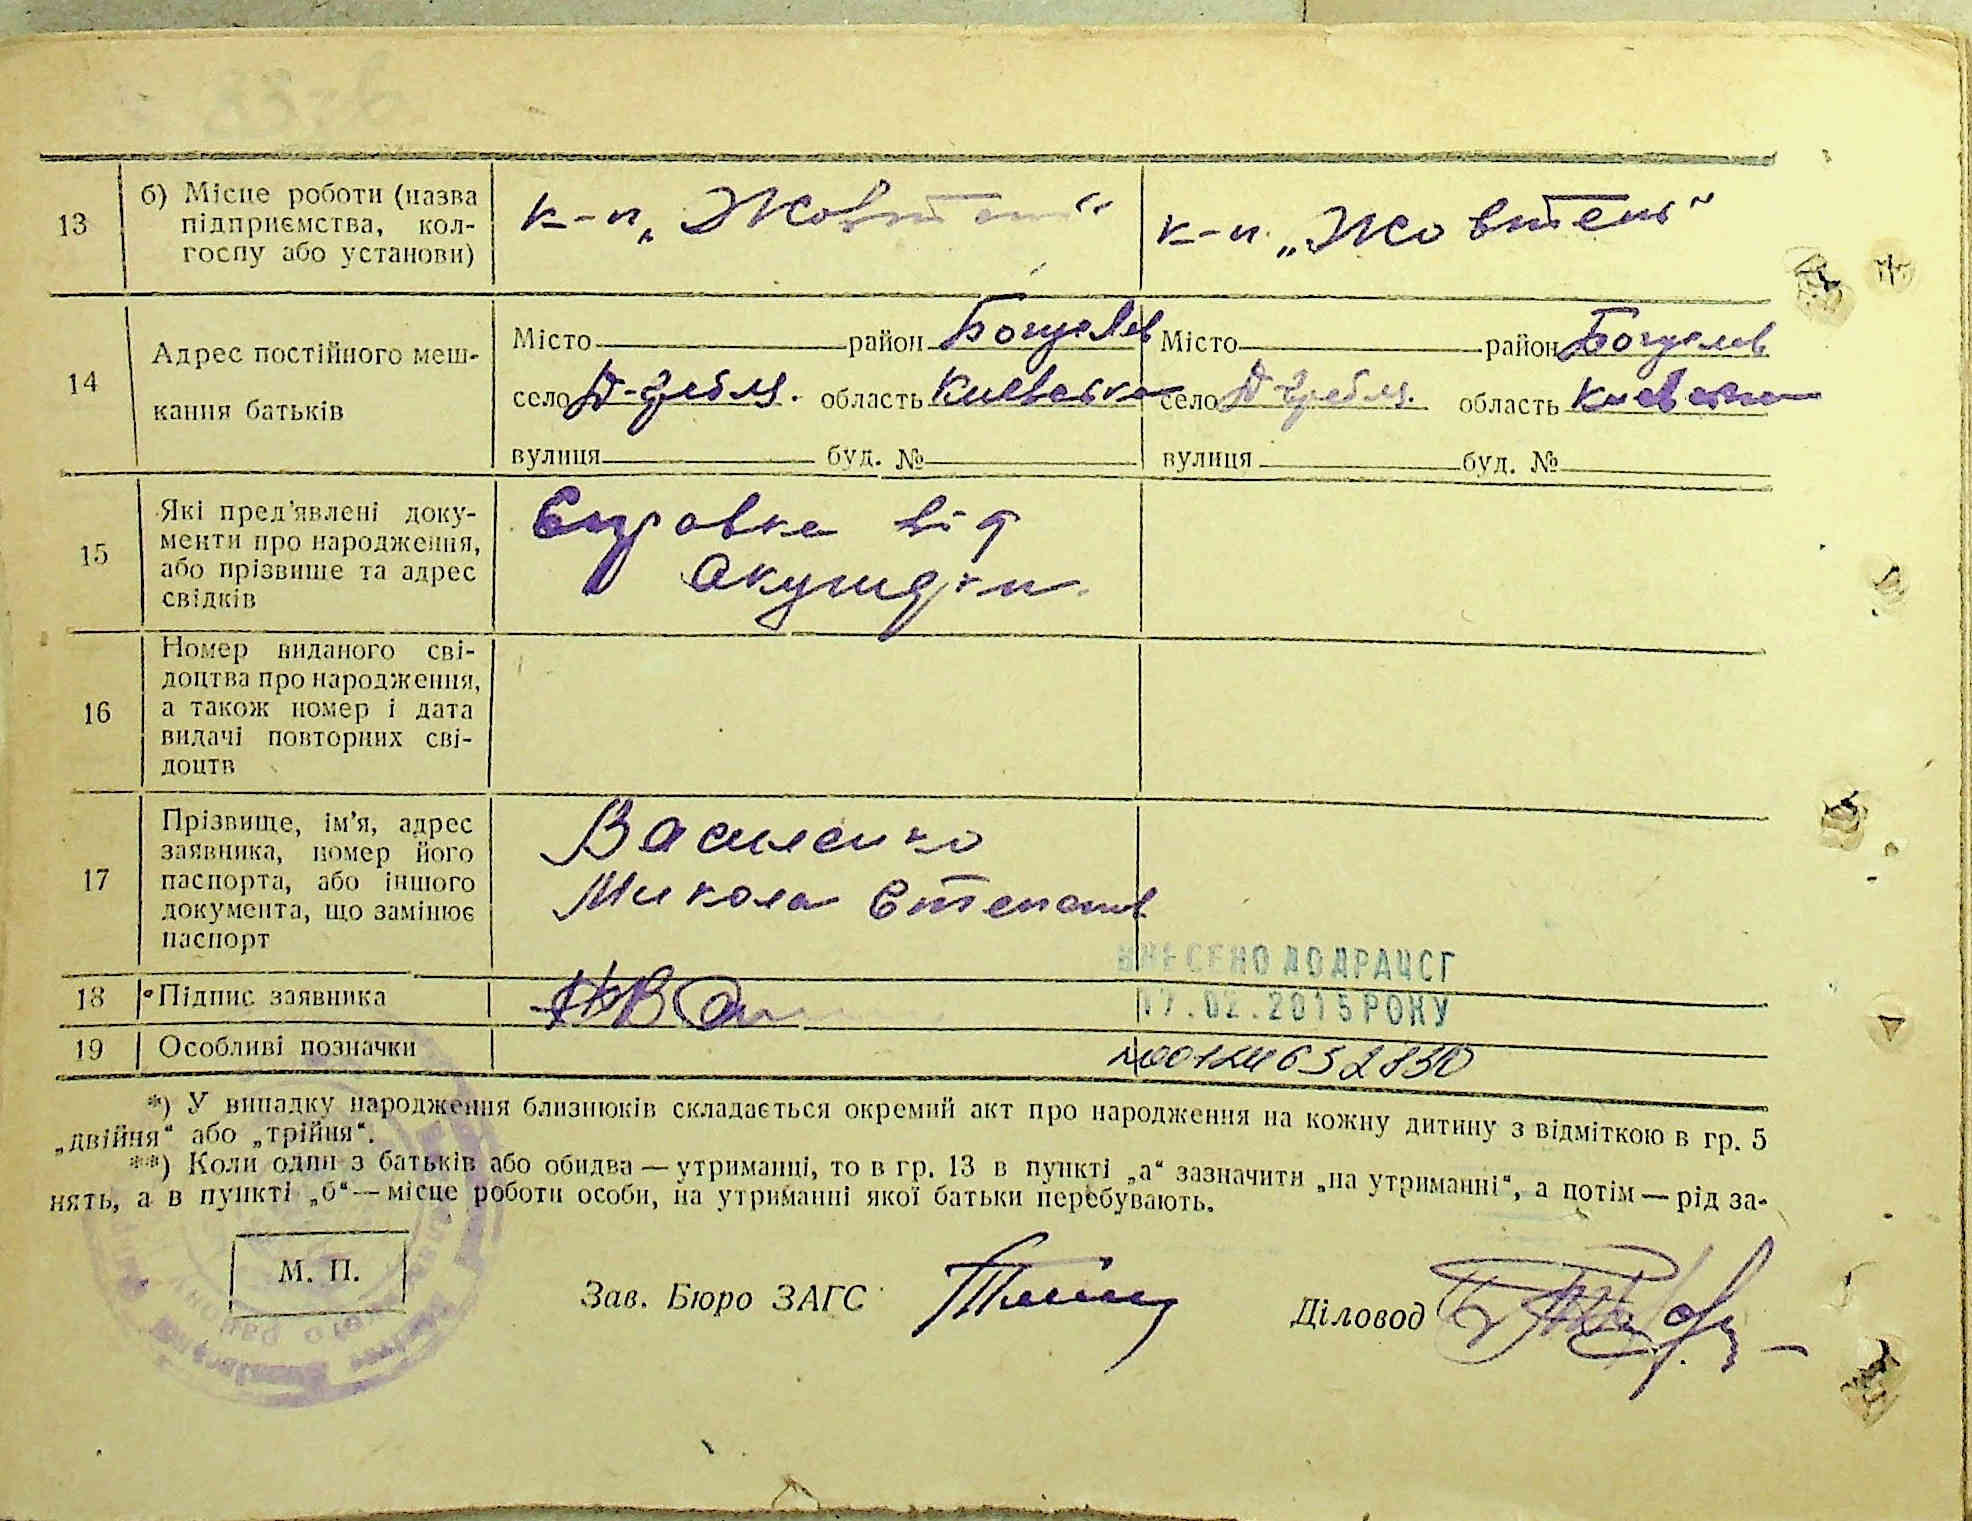 13
б) Місце роботи (назва
підприємства, кол-
госпу або установи)
к-п „Жовтень“
к-п. „Жовтень“
14
Адрес постійного меш-
кання батьків
Місто район Богуслав
село Д-Гребля. область Киевська
вулиця буд. №
Місто район Богуслав
село Д-Гребля. область Киевська
вулиця буд. №
15
Які пред’явлені доку-
менти про народження,
або прізвище та адрес
свідків
Справка від
акушерки
16
Номер виданого сві-
доцтва про народження,
а також номер і дата
видачі повторних сві-
доцтв
17
Прізвище, ім’я, адрес
заявника, номер його
паспорта, або іншого
документа, що замінює
паспорт
Василенко
Микола Степанов
ВНЕСЕНО ДО ДРАЦСГ
17.02.2015 РОКУ
18
Підпис заявника
19
Особливі позначки
*) У випадку народження близнюків складається окремий акт про народження на кожну дитину з відміткою в гр. 5
„двійня“ або „трійня“.
**) Коли один з батьків або обидва — утриманці, то в гр. 13 в пункті „а“ зазначити „на утриманні“, а потім — рід за-
нять, а в пункті „б“ — місце роботи особи, на утриманні якої батьки перебувають.
М. П.
Зав. Бюро ЗАГС
Діловод